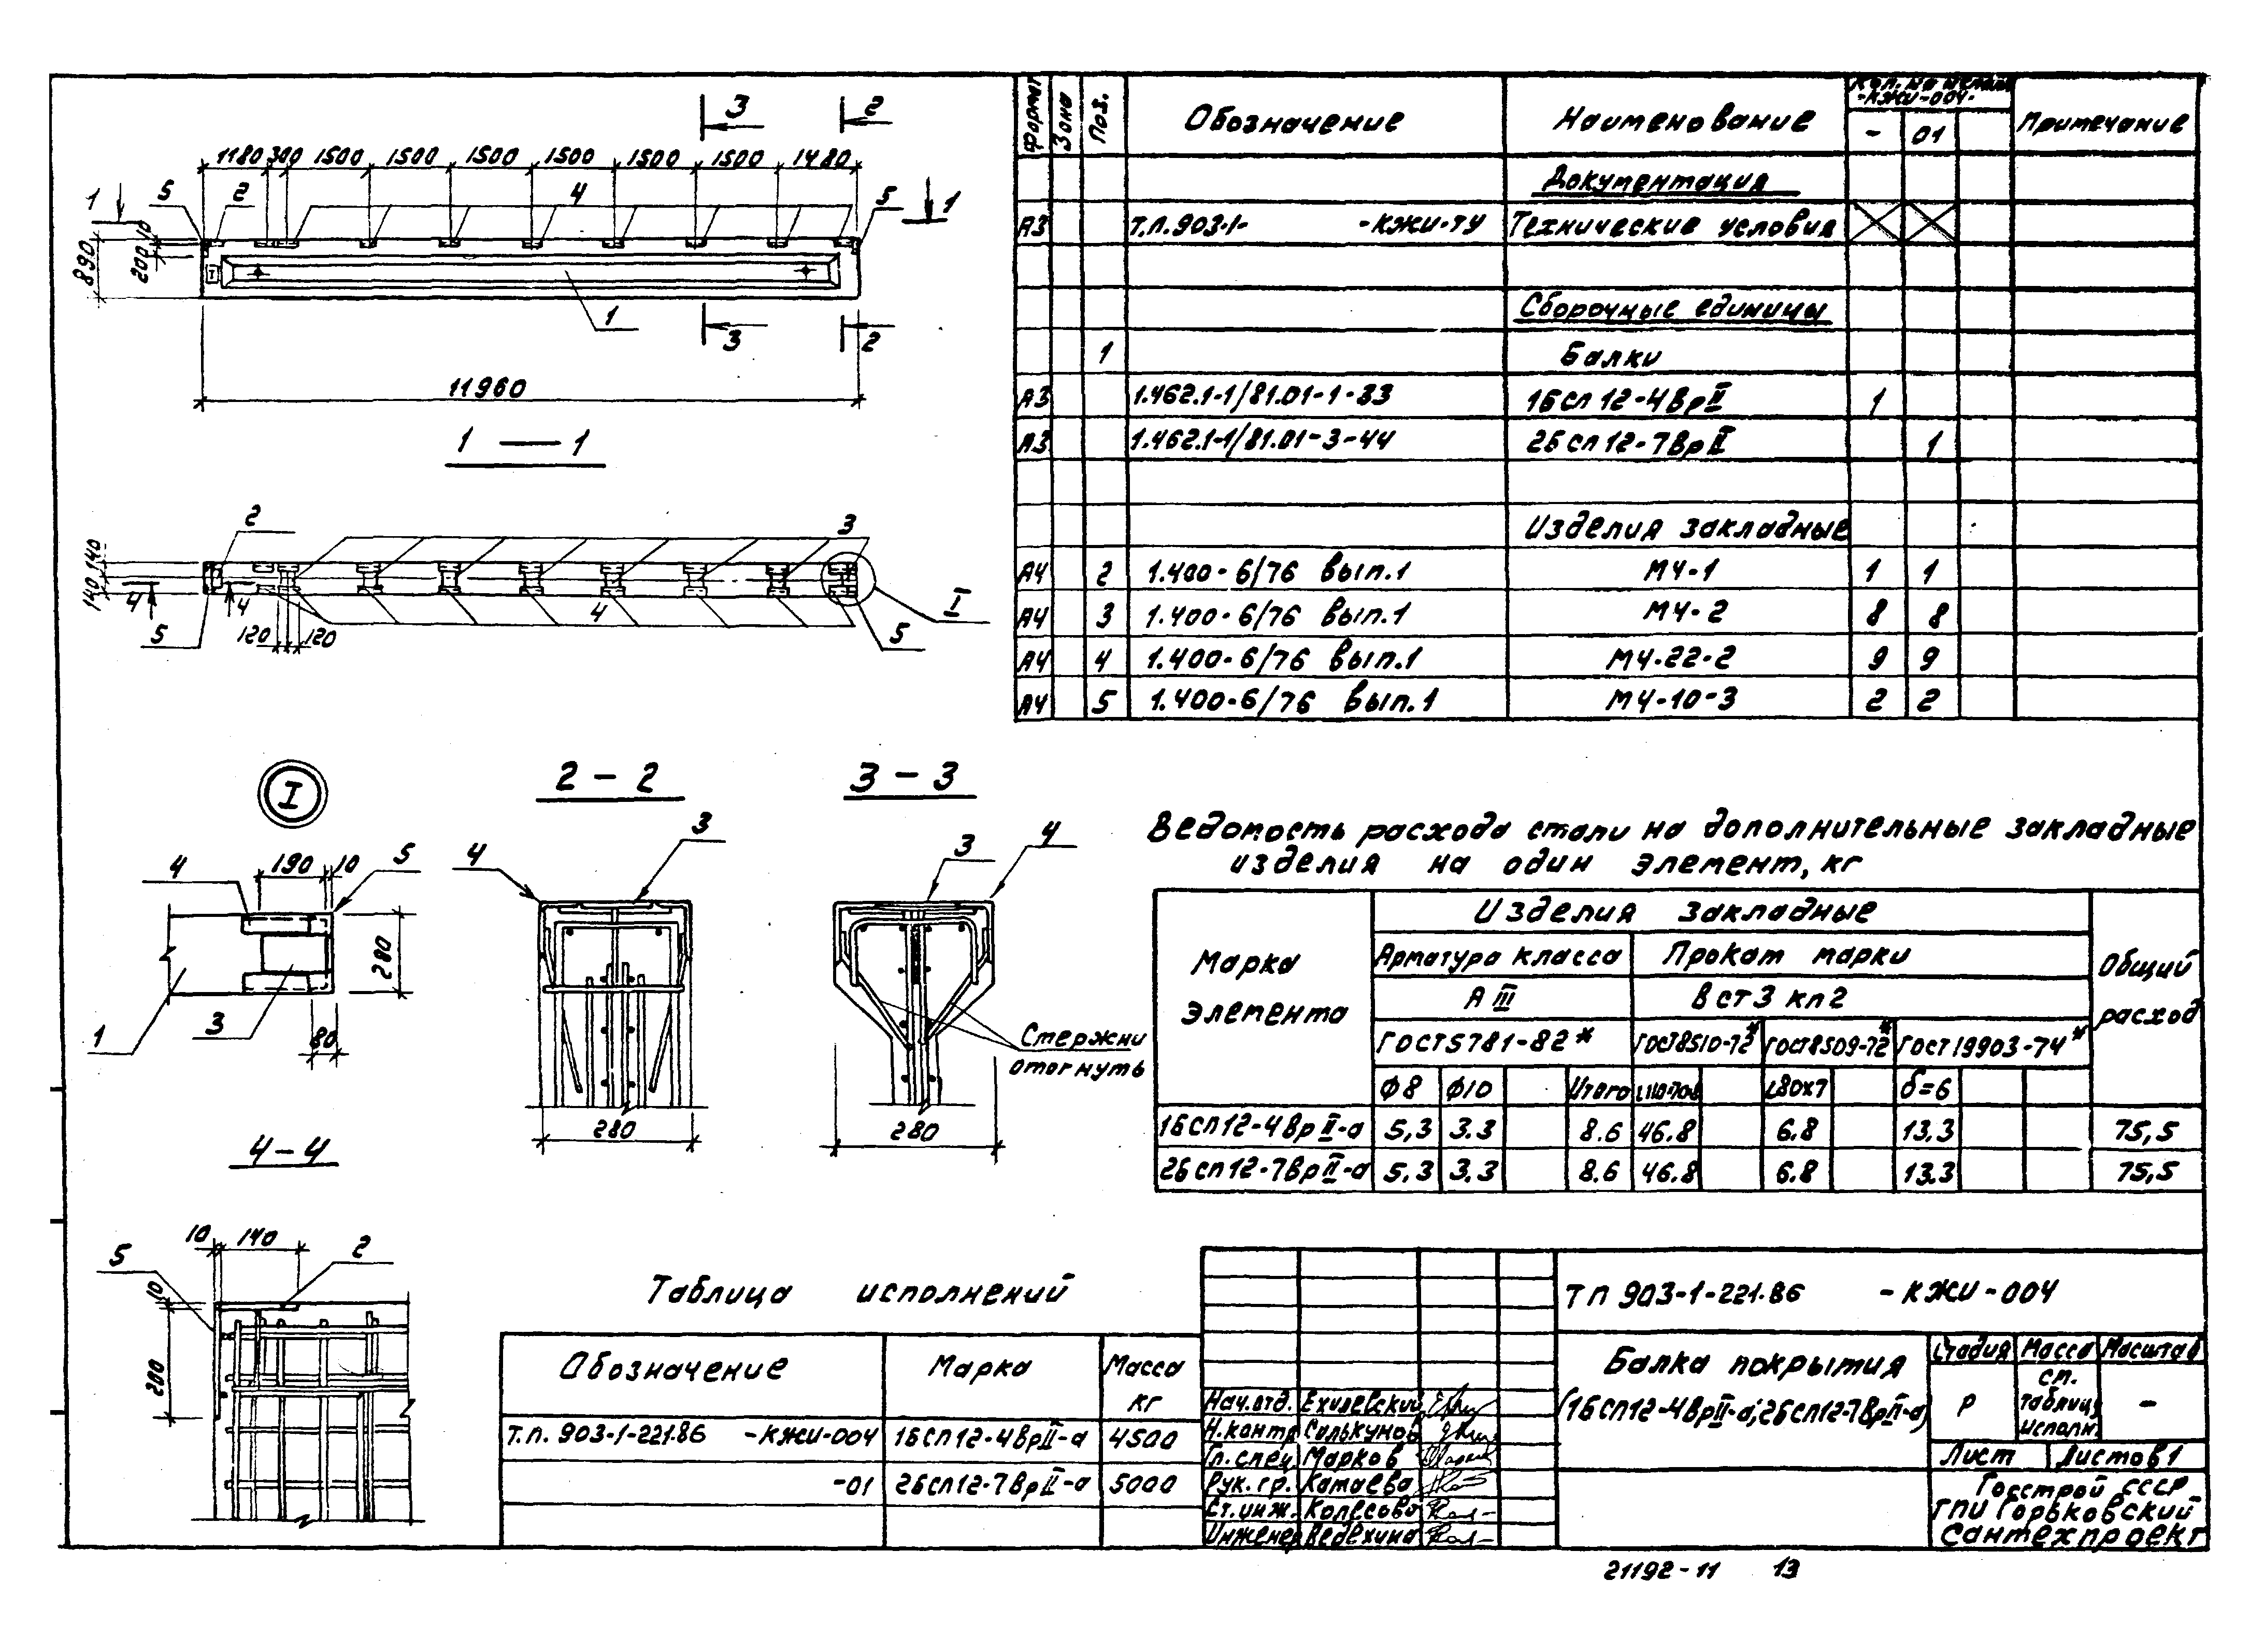 3 2
1180 300 1500 1500 1500 1500 1500 1500 1480
1 5 2 4 5 1
890 200 10
I
1
3 2
11960
1 — 1
2 3
140 140
4 4 4 I
5 120 120 5
Формат Зона Поз. Обозначение Наименование Кол. на -КЖИ-004- Примечание
- 01
Документация
А3 Т.П.903-1- -КЖИ-ТУ Технические условия
Сборочные единицы
1 Балки
А3 1.462.1-1/81.01-1-33 1БСП12-4ВрII 1
А3 1.462.1-1/81.01-3-44 2БСП12-7ВрII 1
Изделия закладные
А4 2 1.400-6/76 Вып.1 М4-1 1 1
А4 3 1.400-6/76 Вып.1 М4-2 8 8
А4 4 1.400-6/76 Вып.1 М4-22-2 9 9
А4 5 1.400-6/76 Вып.1 М4-10-3 2 2
I
4 190 10 5
280
1 3 80
2 - 2
4 3
280
3 - 3
3 4
Стержни
отогнуть
280
4-4
5 10 140 2
10
200
Ведомость расхода стали на дополнительные закладные
изделия на один элемент, кг
Марка элемента Изделия закладные Общий расход
Арматура класса Прокат марки
А III Вст3кп2
ГОСТ5781-82* ГОСТ8510-72* ГОСТ8509-72* ГОСТ19903-74*
Ф8 Ф10 Итого L80х7 δ=6
1БСП12-4ВрII-а 5,3 3.3 8.6 46.8 6.8 13.3 75,5
2БСП12-7ВрII-а 5,3 3.3 8.6 46.8 6.8 13.3 75,5
Таблица исполнений
Обозначение Марка Масса кг
Т.П. 903-1-221.86 -КЖИ-004 1БСП12-4ВрII-а 4500
-01 2БСП12-7ВрII-а 5000
ТП 903-1-221.86 -КЖИ-004
Балка покрытия
(1БСП12-4ВрII-а; 2БСП12-7ВрII-а)
Стадия Масса Масштаб
Р см. таблицу исполн. -
Лист Листов 1
Нач.отд. Ехилевский
Н.контр Силькунов
Гл.спец. Марков
Рук.гр. Катаева
Ст.инж. Колесова
Инженер Ведехина
Госстрой СССР
ГПИ Горьковский
Сантехпроект
21192-11 13